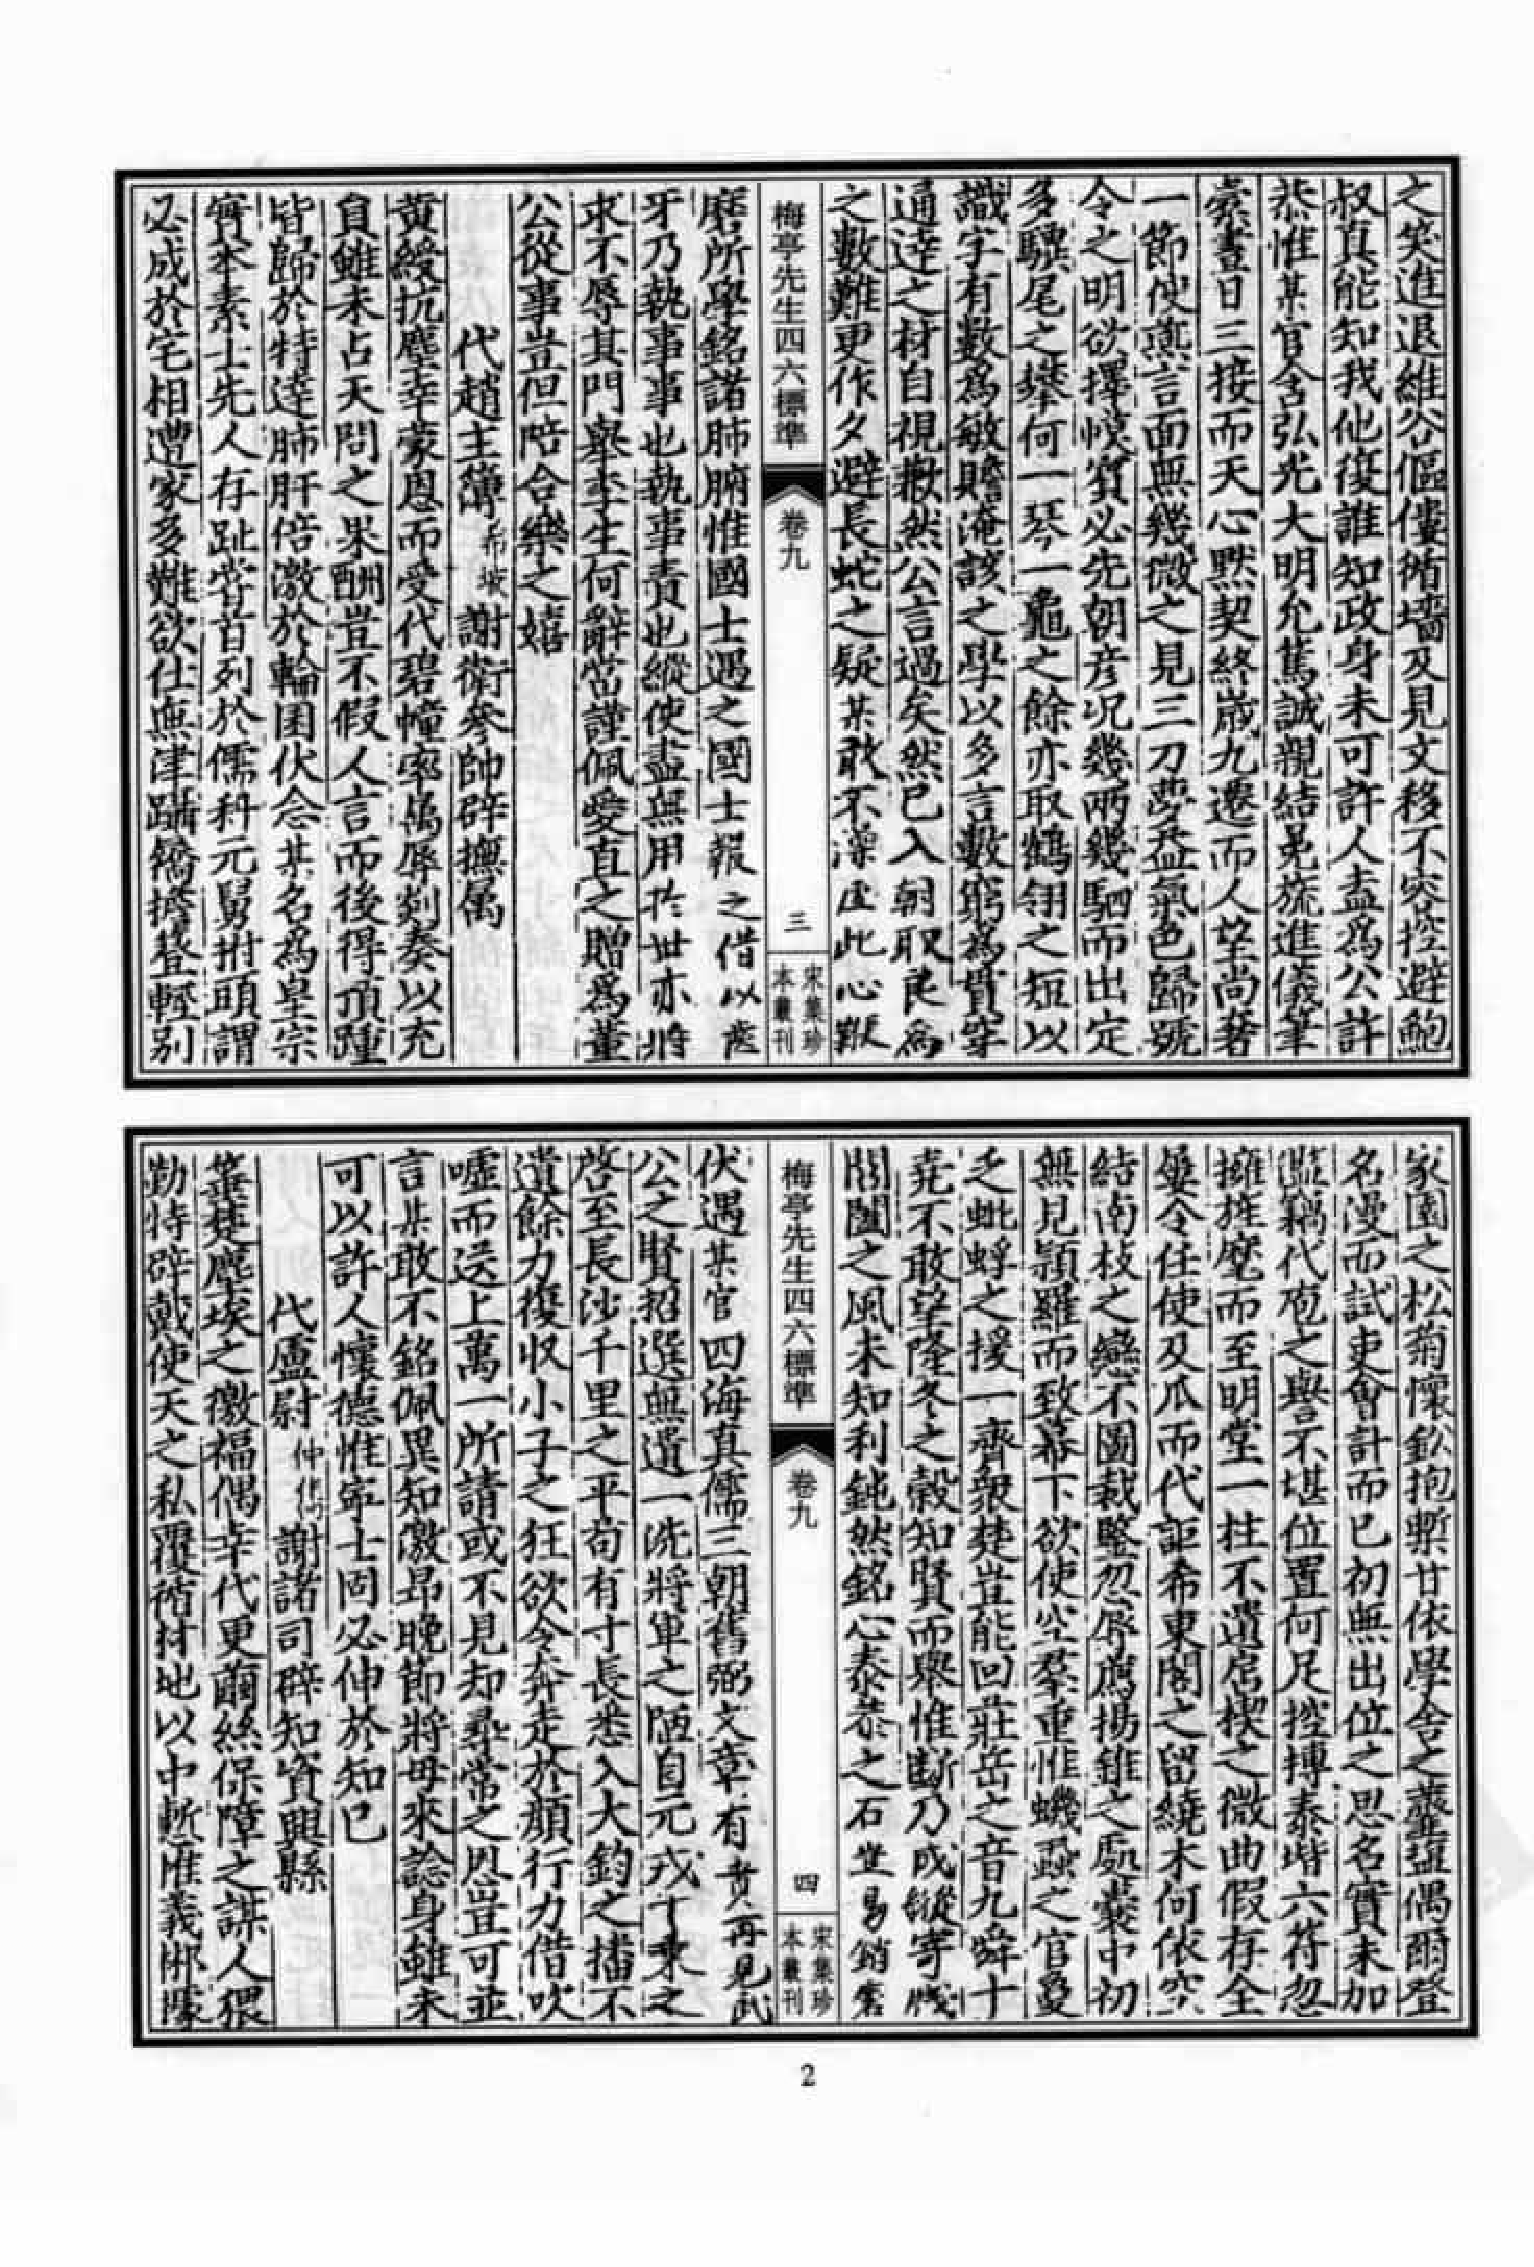 之笑進退維谷傴僂循墻及見文移不容控避鮑
叔真能知我他復誰知政身未可許人盍為公許
恭惟某官含弘光大明允篤誠親結冕旒進儀筆
橐晝日三接而天心默契終歲九遷而人望尚著
一節使燕言面無幾微之見三刀夢益氣色歸號
令之明欲擇慢賓必先朝彥况幾兩幾駟而出定
多驥尾之攀何一琴一龜之餘亦取鶴翎之短以
識字有數為敏贍淹該之學以多言數窮為貫穿
通達之材自視歉然公言過矣然已入朝取民為
之數難更作久避長蛇之疑某敢不澡 此心
梅亭先生四六標準
卷九
三
宋集珍
本叢刊
磨所學銘諸肺腑惟國士遇之國士報之借以齒
牙乃執事事也執事責也縱使盡無用於世亦將
求不辱其門舉李生何辭當謹佩愛直之贈為董
公從事豈但陪合樂之嬉
代趙主簿希 謝衡參帥辟撫属
黄綬抗塵幸蒙恩而受代碧幢率属辱剡奏以充
自雖未占天問之果酬豈不假人言而後得頂踵
皆歸於特達肺肝倍激於輪囷伏念某名為皇宗
實本素士先人存趾嘗首列於儒科元舅拊頭謂
必成於宅相遭家多難欲仕無津躡 擔簦輕别
家園之松菊懷鈆抱槧甘依學舍之虀鹽偶爾登
名漫而試吏會計而已初無出位之思名實未加
濫竊代庖之譽不堪位置何足控摶泰堦六符忽
擁旌麾而至明堂一柱不遺扂楔之微曲假存全
屢令任使及瓜而代詎希東閤之留繞木何依空
結南枝之戀不圖裁鑒忽辱薦揚錐之處囊中初
無見穎羅而致幕下欲使空羣重惟蟣蝨之官蔓
乏蚍蜉之援一齊衆楚豈能回莊岳之音九舜十
堯不敢望隆冬之榖知賢而舉惟斷乃成縱寄牋
闔闢之風未知利鈍然銘心泰 之石豈易銷磨
梅亭先生四六標準
卷九
四
宋集珍
本叢刊
伏遇某官四海真儒三朝舊弼文章有 再見武
公之賢招選無遺一洗將軍之陋自元戎十乘之
啓至長沙千里之平苟有寸長悉入大鈞之播不
遺餘力復收小子之狂欲令奔走於顔行力借吹
嘘而送上萬一所請或不見却尋常之恩豈可並
言某敢不銘佩異知激昂晩節將母來諗身雖未
可以許人懷德惟寕士固必伸於知已
代盧尉仲 謝諸司辟知資興縣
箠楚塵埃之 福偶幸代更繭絲保障之謀人猥
勤特辟戴使天之私覆循 地以中慙惟義 隊